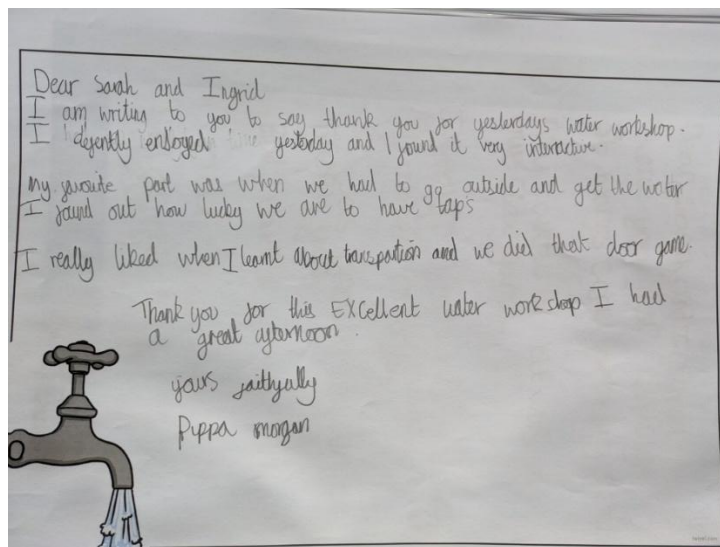 Dear Sarah and Ingrid
I am writing to you to say thank you for yesterdays water workshop.
I defently enjoyed yesterday and I found it very interactive.
My favourite part was when we had to go outside and get the water
I found out how lucky we are to have taps
I really liked when I learnt about transpartion and we did that door game.
Thank you for this EXCellent water workshop I had
a great afternoon.
yours faithfully
Pippa morgan